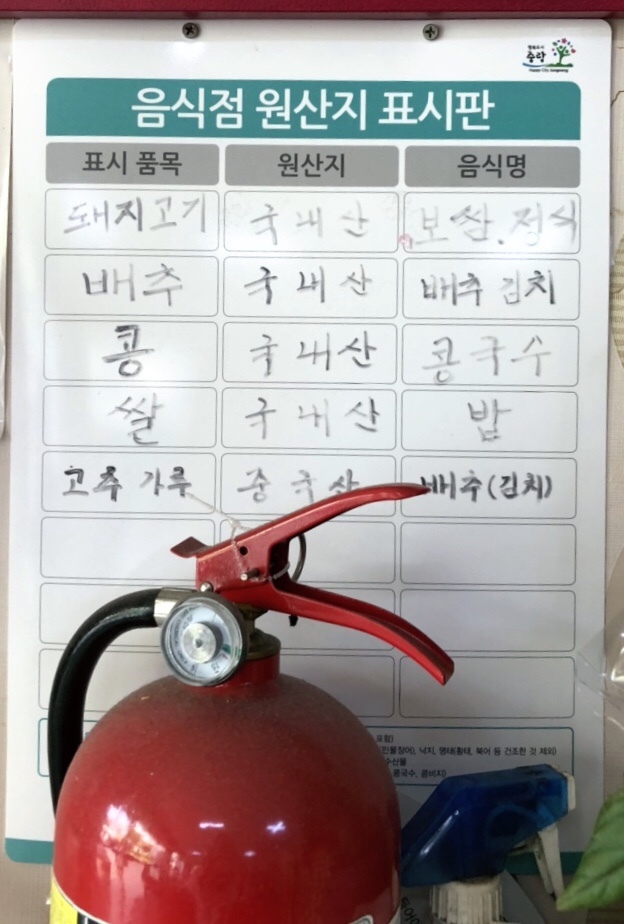 행복도시
중랑
Happy City Jungnang
음식점 원산지 표시판
표시 품목 원산지 음식명
돼지고기 국내산 보쌈.정식
배추 국내산 배추김치
콩 국내산 콩국수
쌀 국내산 밥
고추가루 중국산 배추(김치)
포함)
민물장어), 낙지, 명태(황태, 북어 등 건조한 것 제외)
수산물
콩국수, 콩비지)